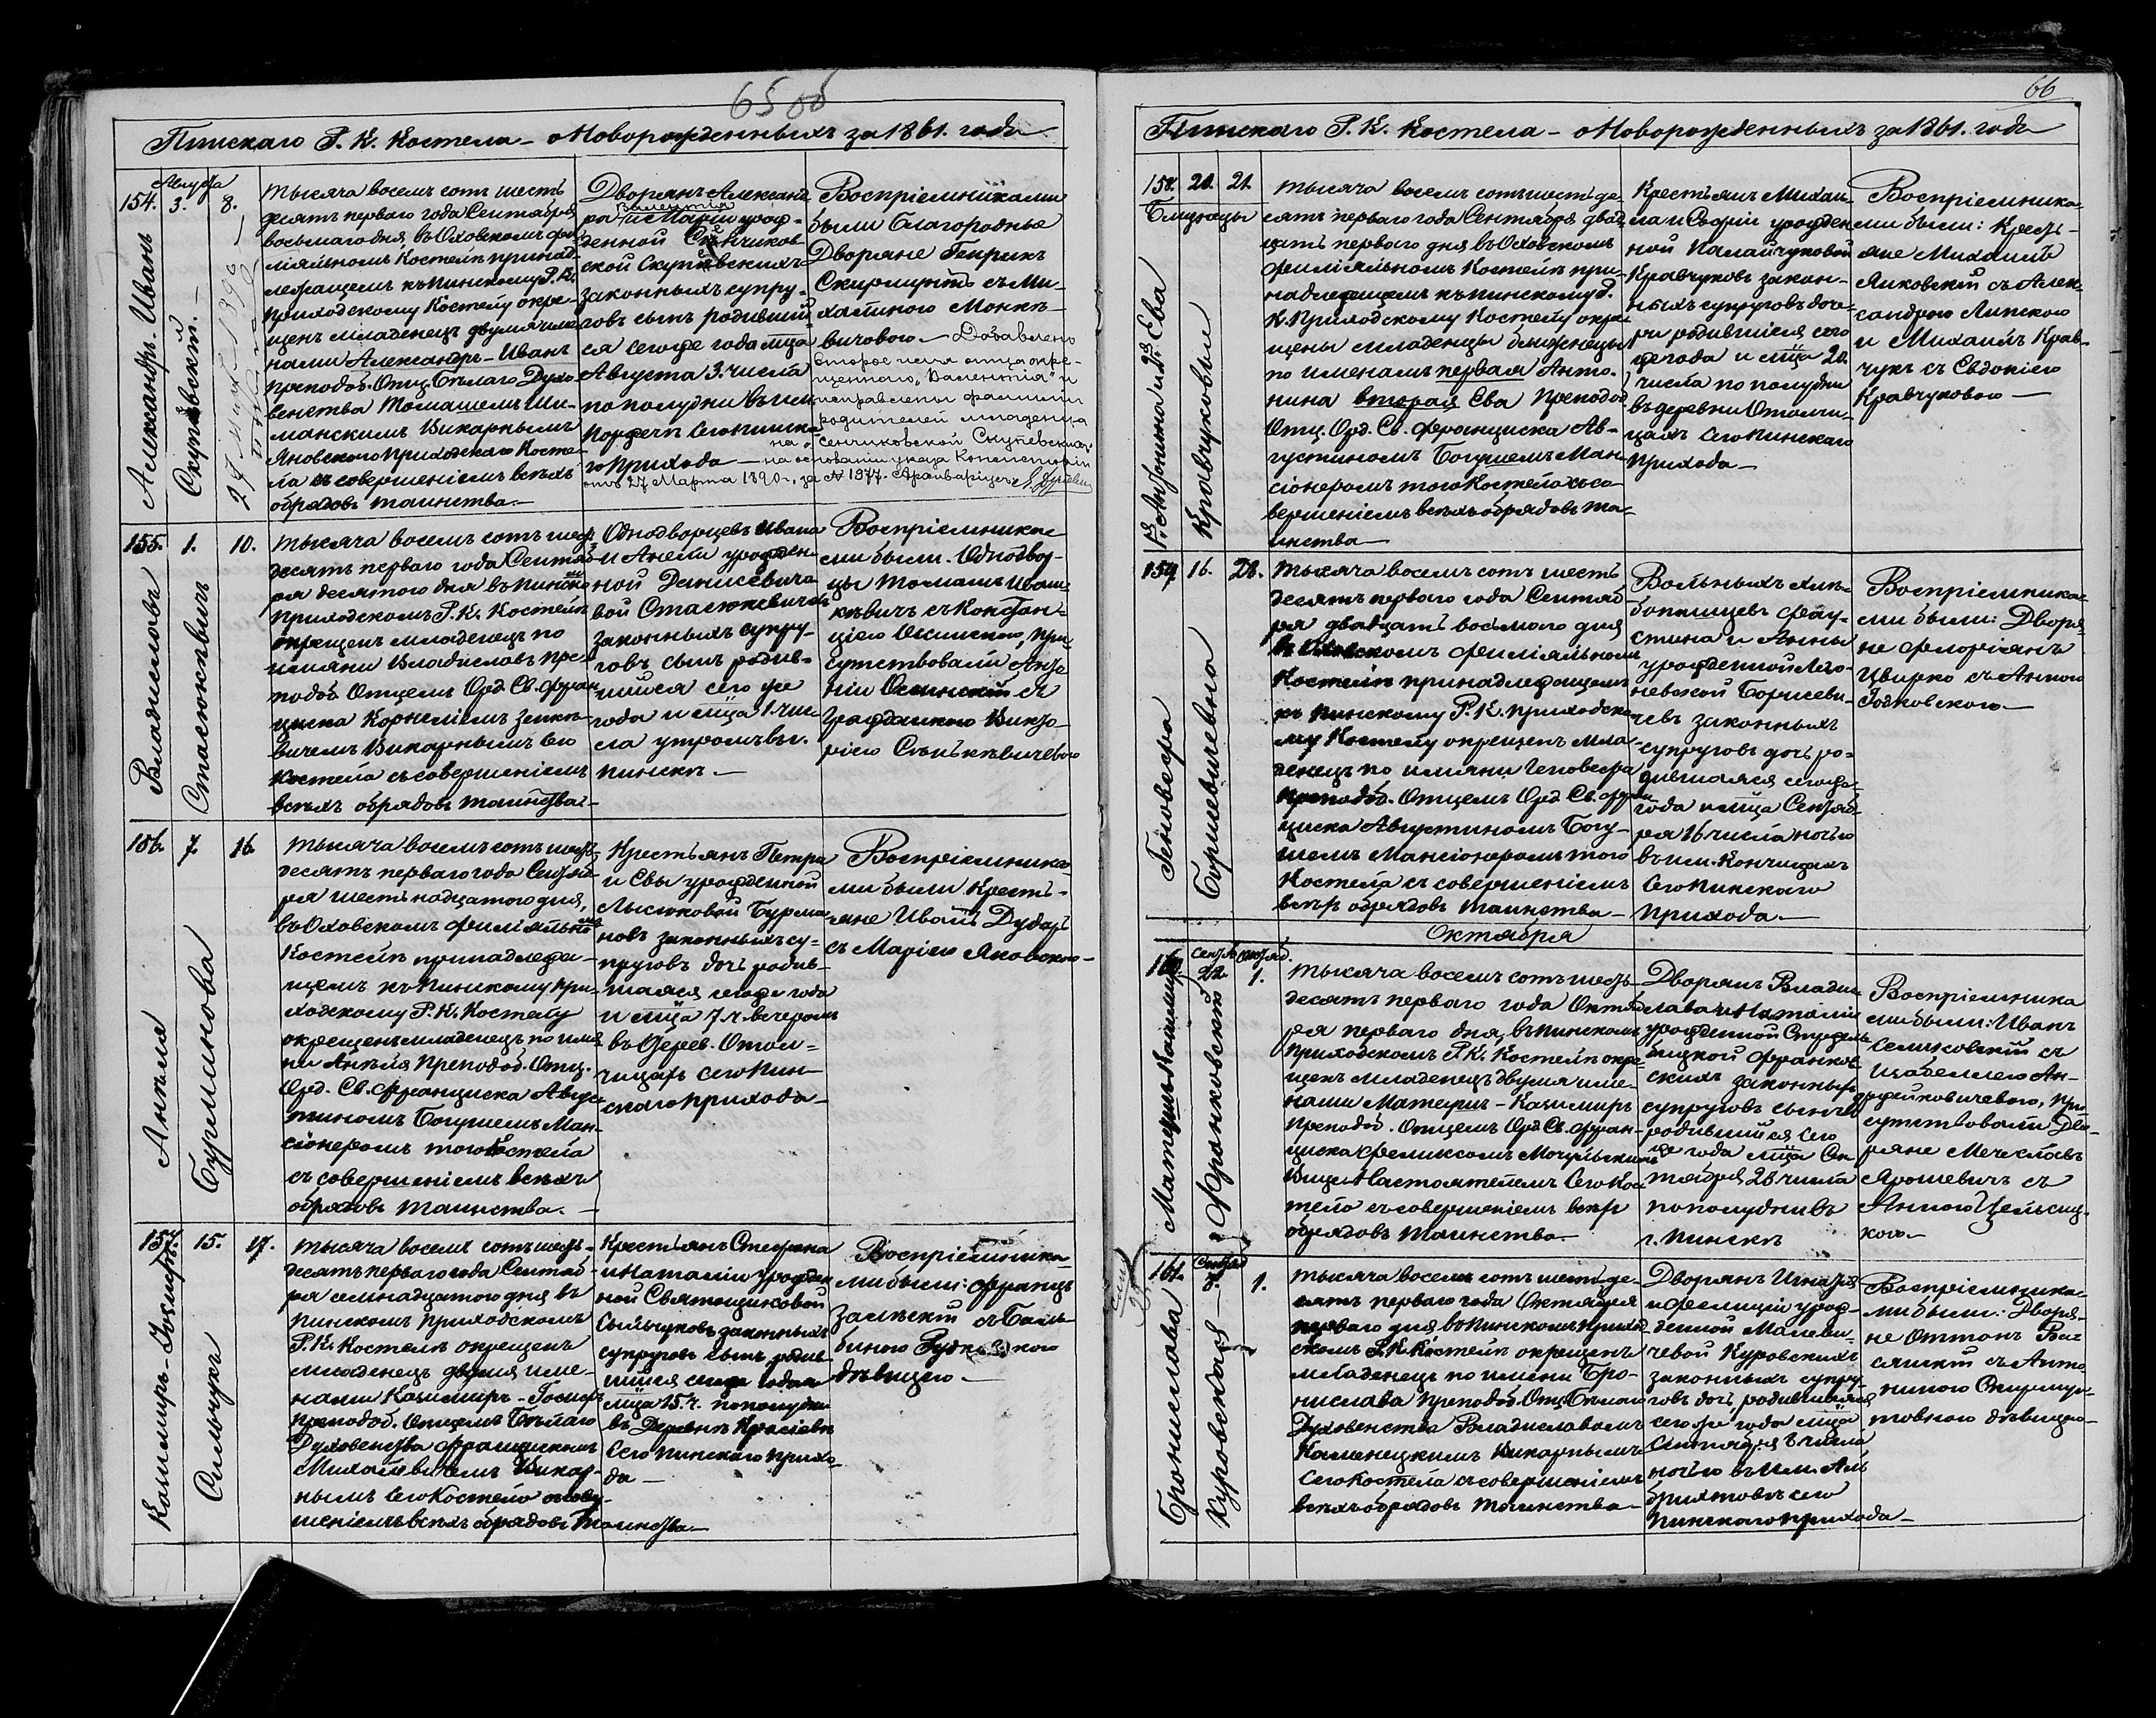 65 об
Пинскаго Р. К. Костела – о Новорожденныхъ за 1861. года
Августа
154. 3. 8.
Александръ-Иванъ
Скупѣвскій.
Тысяча восемъ сотъ шесть
десятъ перваго года Сентября
восьмаго дня, въ Оховскомъ фи
ліяльномъ Костелѣ принад-
лежащемъ къ Пинскому Р. К.
Приходскому Костелу окре-
щенъ младенецъ двумя име
нами Александръ-Иванъ
Преподоб. Отц. Бѣлаго Духо-
венства Томашемъ Ши-
манскимъ Викарнымъ
Яновскаго приходскаго Косте-
ла съ совершеніемъ всѣхъ
обрядовъ таинства.
Дворянъ Александ
Валентія
ра и Маріи урож-
денной Сѣнчиков
ской Скупѣвскихъ
законныхъ супру-
говъ сынъ родивший
ся сего же года мца
Августа 3. числа
по полудни въ им.
Порѣчи Сего Пинска
го прихода —
Воспріемниками
были Благородные
Дворяне Генрикъ
Скирмунтъ съ Ми-
халиною Монкѣ-
вичовою. — Добавлено
второе имя отца окре-
щеннаго „Валентія" и
исправлены фамиліи
родителей младенца
на „Сенчиковской Скупевскихъ"
на основаніи указа Консисторіи
отъ 27 Марта 1890 г., за № 1377.
155. 1. 10.
Владиславъ
Стасюкѣвичъ
Тысяча восемъ сотъ шест
десятъ перваго года Сентяб
ря десятого дня въ Пинском
приходскомъ Р. К. Костелѣ
окрещенъ младенецъ по
имяни Владиславъ Пре-
подоб. Отцемъ Орд. Св. Фран
циска Корнеліемъ Зенкѣ-
вичемъ Викарнымъ Сего
Костела съ совершеніемъ
всѣхъ обрядовъ таинства. —
Однодворцевъ Ивана
и Анели урожден-
ной Денисевича
вой Стасюкевичевъ
законныхъ супру-
говъ сынъ родив-
шійся сего же
года и мца 1. чис
ла утромъ въ г.
Пинскѣ. —
Воспріемника
ми были. Однодвор-
цы Томашъ Иваш-
кѣвичъ съ Констан-
ціею Осинскою, при
сутствовали Анто
ній Осинскій съ
Гражданкою Викто-
ріею
156. 7. 16.
Анѣля
Бурманова
Тысяча восемъ сотъ шесть
десятъ перваго года Сентяб
ря шестьнадцатого дня,
въ Оховскомъ филіяльном
Костелѣ принадлежа-
щемъ къ Пинскому при-
ходскому Р. К. Костелу
окрещенъ младенецъ по имя
ни Анѣля Преподоб. Отц.
Орд. Св. Франциска Авгус
тиномъ Богушемъ Ман-
сіонеромъ того Костела
съ совершеніемъ всѣхъ
обрядовъ таинства. —
Крестьянъ Петра
и Евы урожденной
Лысюковой Бурма
новъ законныхъ су-
пруговъ дочь родив-
шаяся сегоже года
и мца 7. ч. вечеромъ
въ дерев. Отол-
чицахъ сего Пин-
скаго прихода —
Воспріемника
ми были Крестъ-
яне Иванъ Дударъ
съ Маріею Яковскою —
157. 15. 17.
Казимиръ-Іосифъ
Сильчукъ
Тысяча восемъ сотъ шесть-
десятъ перваго года Сентяб-
ря семнадцатого дня въ
Пинскомъ приходскомъ
Р. К. Костелѣ окрещенъ
младенецъ двумя име-
нами Казимиръ-Іосифъ
Преподоб. Отцемъ Бѣлаго
Духовенства Францишкомъ
Михалевичемъ Викар-
нымъ Сего Костела съ совер-
шеніемъ всѣхъ обрядовъ таинства. —
Крестьянъ Стефана
и Наталіи урожден
ной Святощиковой
Сыльчуковъ законныхъ
супруговъ сынъ родив-
шійся сегоже года и
мца 15. ч. пополудни
въ Деревнѣ Красіевѣ
Сего Пинскаго прихо-
да —
Воспріемника
ми были: Францъ
Залѣскій съ Баль-
биною
дѣвицею. —
66
Пинскаго Р. К. Костела – о Новорожденныхъ за 1861. года
158. 20. 21.
Близнецы
1я Антонина и 2я Ева
Кравчуковы
Тысяча восемъ сотъ шесть де-
сятъ перваго года Сентября двад
цать перваго дня въ Оховскомъ
филіяльномъ Костелѣ при-
надлежащемъ къ Пинскому Р.
К. Приходскому Костелу окре
щены младенцы близнецы
по именамъ первая Анто-
нина вторая Ева Преподоб
Отц. Орд. Св. Франциска Ав-
густиномъ Богушемъ Ман-
сіонеромъ того Костела съ со-
вершеніемъ всѣхъ обрядовъ та-
инства —
Крестьянъ Михаи-
ла и Софіи урожден
ной Палайчуковой
Кравчуковъ закон-
ныхъ супруговъ доче-
ри родившіеся сего
же года и мца 20.
числа по полудни
въ деревни Отолчи-
цахъ сего Пинскаго
прихода —
Воспріемника-
ми были: Кресть-
яне Михаилъ
Янковскій съ Алек-
сандрою Липскою
и Михаилъ Крав-
чукъ съ Евдокіею
Кравчуковою —
159 16. 28.
Геновефа
Борисевичевна
Тысяча восемъ сотъ шесть
десятъ перваго года Сентяб-
ря двадцать восьмого дня
въ Оховскомъ филіяльномъ
Костелѣ принадлежащемъ
къ Пинскому Р. К. приходско-
му Костелу окрещенъ мла-
денецъ по имяни Геновефа
Преподоб. Отцемъ Орд Св. Фран
циска Августиномъ Богу-
шемъ Мансіонеромъ того
Костела съ совершеніемъ
всѣхъ обрядовъ таинства —
Вольныхъ хлѣ-
бопашцевъ Фау-
стина и Анны
урожденной
Борисеви-
чевъ законныхъ
супруговъ дочь ро-
дившаяся сегоже
года и мца Сентяб-
ря 16 числа ночью
въ им. Кончицахъ
Сего Пинскаго
прихода. —
Воспріемника-
ми были: Дворя-
не Флоріянъ
Цвирко съ Анною
—
Октября
160. Сентяб 22 Октяб. 1.
Матеушъ Казимиръ
Франковскій
Тысяча восемъ сотъ шесть-
десятъ перваго года Октяб
ря перваго дня, въ Пинскомъ
Приходскомъ Р. К. Костелѣ окре-
щенъ младенецъ двумя име-
нами Матеушъ-Казимиръ
Преподоб. Отцемъ Орд Св. Фран-
циска Феликсомъ Мочульскимъ
Вице-Настоятелемъ Сего Кос
тела съ совершеніемъ всѣхъ
обрядовъ таинства. —
Дворянъ Влади-
слава и Наталіи
урожденной
Франков
скихъ законныхъ
супруговъ сынъ
родившійся сего
же года мца Сен
тября 28 числа
по полудни въ
г. Пинскѣ
Воспріемника
ми были: Иванъ
съ
Изабеллею Ан-
дрейковичевою, при
сутствовали Дво-
ряне Мечеславъ
Ярошевичъ съ
Анною
кою. —
161. Сентяб 8 1.
Бронислава
Куровская
Тысяча восемъ сотъ шесть де-
сятъ перваго года Октября
перваго дня, въ Пинскомъ приход
скомъ Р. К. Костелѣ окрещенъ
младенецъ по имени Бро-
нислава Преподоб. Отц. Бѣлаго
Духовенства Владиславомъ
Каменецкимъ Викарнымъ
Сего Костела съ совершеніемъ
всѣхъ обрядовъ таинства —
Дворянъ Игнатія
и Фелиціи урож-
денной Малеви-
чевой Куровскихъ
законныхъ супру-
говъ дочь, родившаяся
сего же года мца
Сентября 8 числа
ночью въ им. Аль
брихтовѣ сего
Пинскаго прихода —
Воспріемника-
ми были: Дворя-
не Оттонъ
съ Анто
ниною Скирмун-
товною дѣвицею —